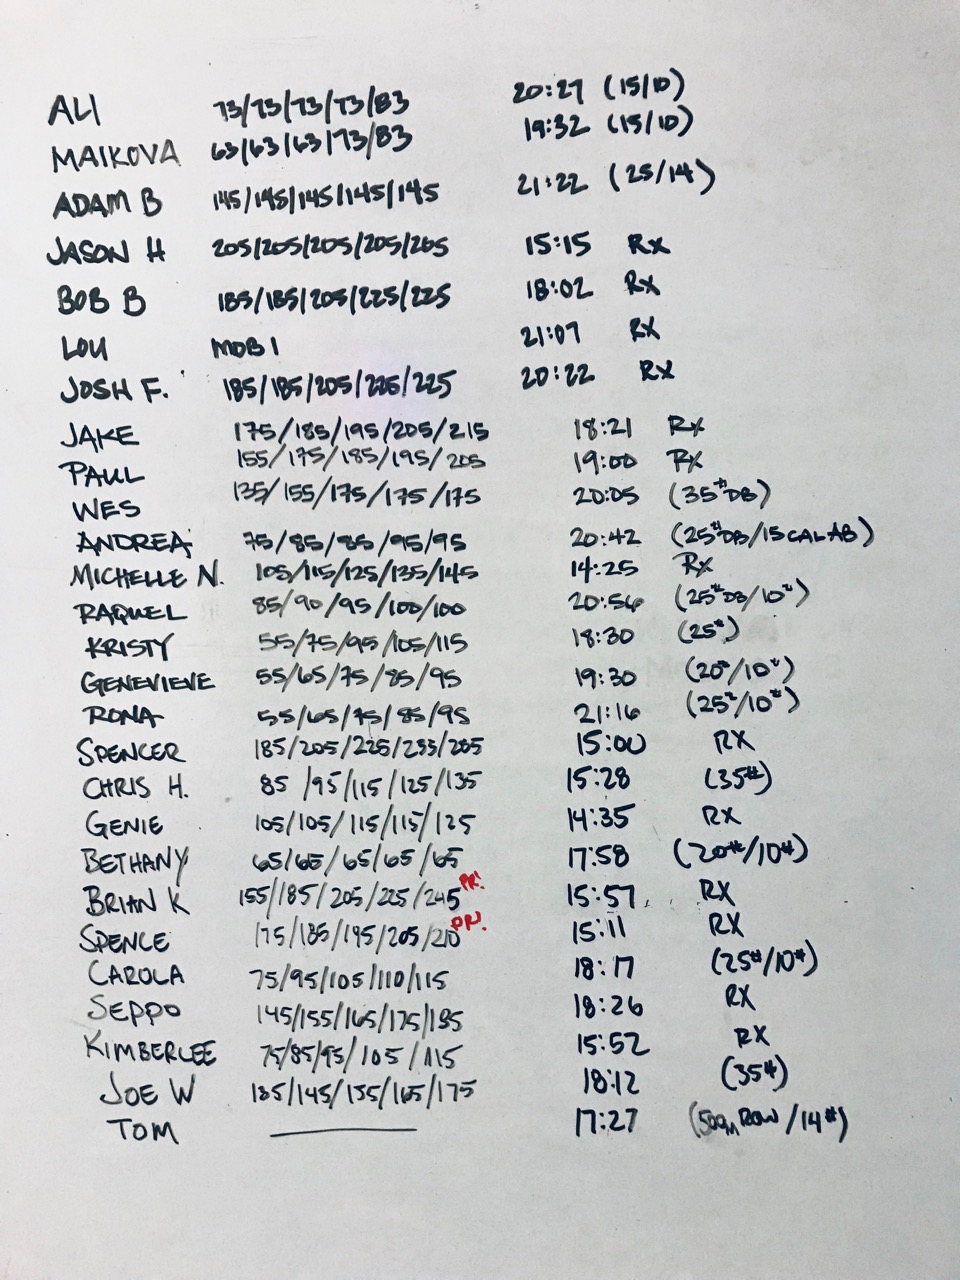 ALI 73/73/73/73/83 20:27 (15/10)
MAIKOVA 63/63/63/73/83 19:32 (15/10)
ADAM B 145/145/145/145/145 21:22 (25/14)
JASON H 205/205/205/205/205 15:15 Rx
BOB B 185/185/205/225/225 18:02 Rx
LOU MOB 1 21:07 Rx
JOSH F. 185/185/205/225/225 20:22 Rx
JAKE 175/185/195/205/215 18:21 Rx
PAUL 155/175/185/195/205 19:00 Rx
WES 135/155/175/175/175 20:05 (35#DB)
ANDREA 75/85/85/95/95 20:42 (25#DB/15CALAB)
MICHELLE N. 105/115/125/135/145 14:25 Rx
RAQUEL 85/90/95/100/100 20:56 (25#DB/10#)
KRISTY 55/75/95/105/115 18:30 (25#)
GENEVIEVE 55/65/75/85/95 19:30 (20#/10#)
RONA 55/65/75/85/95 21:16 (25#/10#)
SPENCER 185/205/225/235/285 15:00 RX
CHRIS H. 85/95/115/125/135 15:28 (35#)
GENIE 105/105/115/115/125 14:35 RX
BETHANY 65/65/65/65/65 17:58 (20#/10#)
BRIAN K 155/185/205/225/245 PR! 15:57 RX
SPENCE 175/185/195/205/210 PR! 15:11 RX
CAROLA 75/95/105/110/115 18:17 (25#/10#)
SEPPO 145/155/165/175/185 18:26 RX
KIMBERLEE 75/85/95/105/115 15:52 RX
JOE W 135/145/155/165/175 18:12 (35#)
TOM 17:27 (500m ROW/14#)